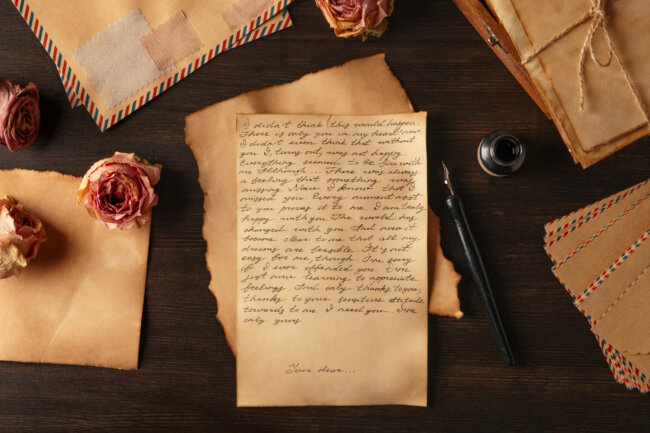 I didn't think this would happen.
There is only you in my heart now.
I didn't even think that without
you I, turns out, was not happy.
Everything seemed to be fine with
me. Although... There was always
a feeling that something was
missing. Now I know that I
missed you. Every moment next
to you proves it to me. I am truly
happy with you. The world has
changed with you. And now it
became clear to me that all my
dreams are feasible. It's not
easy for me though. I'm sorry
if I ever offended you. I'm
just now learning to appreciate
feelings. And only thanks to you,
thanks to your sensitive attitude
towards to me. I need you. I'm
only yours
Your dear...